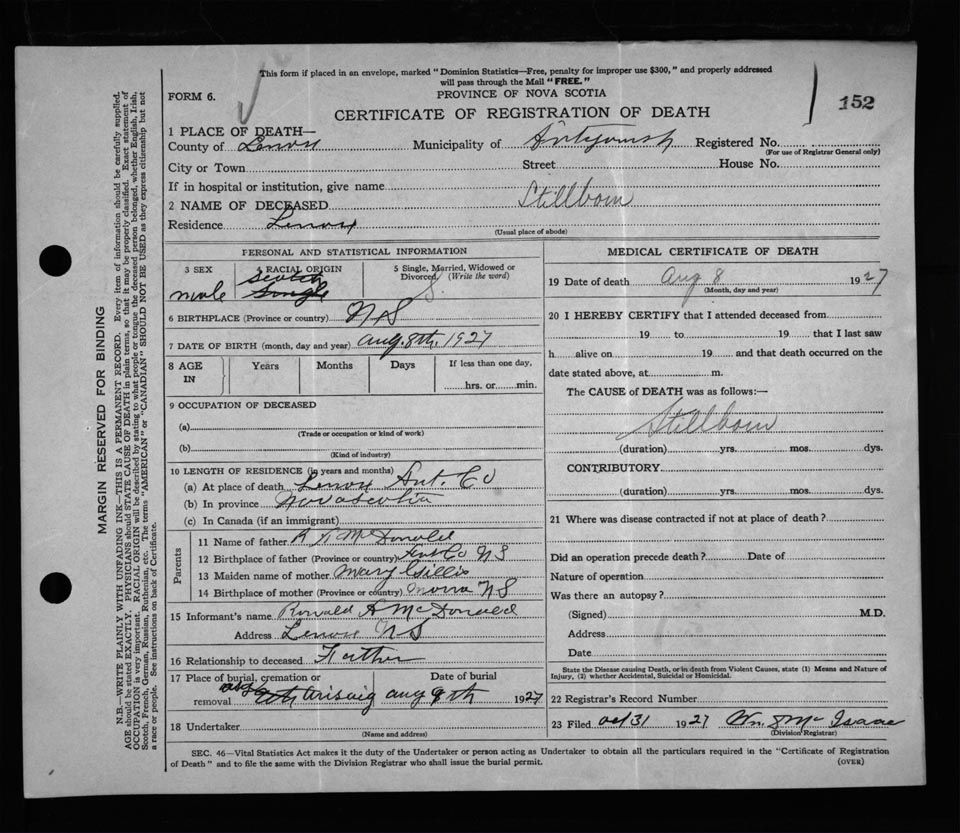 This form if placed in an envelope, marked "Dominion Statistics—Free, penalty for improper use $300," and properly addressed
will pass through the Mail "FREE."
FORM 6.
PROVINCE OF NOVA SCOTIA
152
CERTIFICATE OF REGISTRATION OF DEATH
1 PLACE OF DEATH—
County of Municipality of Antigonish Registered No.
(For use of Registrar General only)
City or Town Street House No.
If in hospital or institution, give name
2 NAME OF DECEASED Stillborn
Residence
(Usual place of abode)
PERSONAL AND STATISTICAL INFORMATION
3 SEX
male
4 RACIAL ORIGIN
Scotch
5 Single, Married, Widowed or Divorced (Write the word)
S.
6 BIRTHPLACE (Province or country) N S
7 DATE OF BIRTH (month, day and year) Aug. 8th, 1927
8 AGE IN Years Months Days If less than one day,
hrs. or min.
9 OCCUPATION OF DECEASED
(a)
(Trade or occupation or kind of work)
(b)
(Kind of industry)
10 LENGTH OF RESIDENCE (in years and months)
(a) At place of death Ant. Co
(b) In province Nova scotia
(c) In Canada (if an immigrant)
Parents
11 Name of father McDonald
12 Birthplace of father (Province or country) Ant Co N S
13 Maiden name of mother Mary Gillis
14 Birthplace of mother (Province or country) N S
15 Informant's name Ronald A McDonald
Address N S
16 Relationship to deceased Father
17 Place of burial, cremation or Date of burial
removal Arisaig Aug 9th 1927
18 Undertaker
(Name and address)
MEDICAL CERTIFICATE OF DEATH
19 Date of death Aug 8 1927
(Month, day and year)
20 I HEREBY CERTIFY that I attended deceased from
19 to 19 that I last saw
h alive on 19 and that death occurred on the
date stated above, at m.
The CAUSE of DEATH was as follows:—
Stillborn
(duration) yrs. mos. dys.
CONTRIBUTORY
(duration) yrs. mos. dys.
21 Where was disease contracted if not at place of death?
Did an operation precede death? Date of
Nature of operation
Was there an autopsy?
(Signed) M.D.
Address
Date
State the Disease causing Death, or in death from Violent Causes, state (1) Means and Nature of
Injury, (2) whether Accidental, Suicidal or Homicidal.
22 Registrar's Record Number
23 Filed Oct 31 1927 McIsaac
(Division Registrar)
SEC. 46—Vital Statistics Act makes it the duty of the Undertaker or person acting as Undertaker to obtain all the particulars required in the "Certificate of Registration
of Death" and to file the same with the Division Registrar who shall issue the burial permit.
(OVER)
MARGIN RESERVED FOR BINDING
N.B.—WRITE PLAINLY WITH UNFADING INK—THIS IS A PERMANENT RECORD. Every item of information should be carefully supplied.
AGE should be stated EXACTLY. PHYSICIANS should STATE CAUSE OF DEATH in plain terms, so that it may be properly classified. Exact statement of
OCCUPATION is very important. RACIAL ORIGIN will be described by stating to what people or tongue the deceased person belonged, whether English, Irish,
Scotch, French, German, Russian, Ruthenian, etc. The terms "AMERICAN" or "CANADIAN" SHOULD NOT BE USED as they express citizenship but not
a race or people. See instructions on back of Certificate.